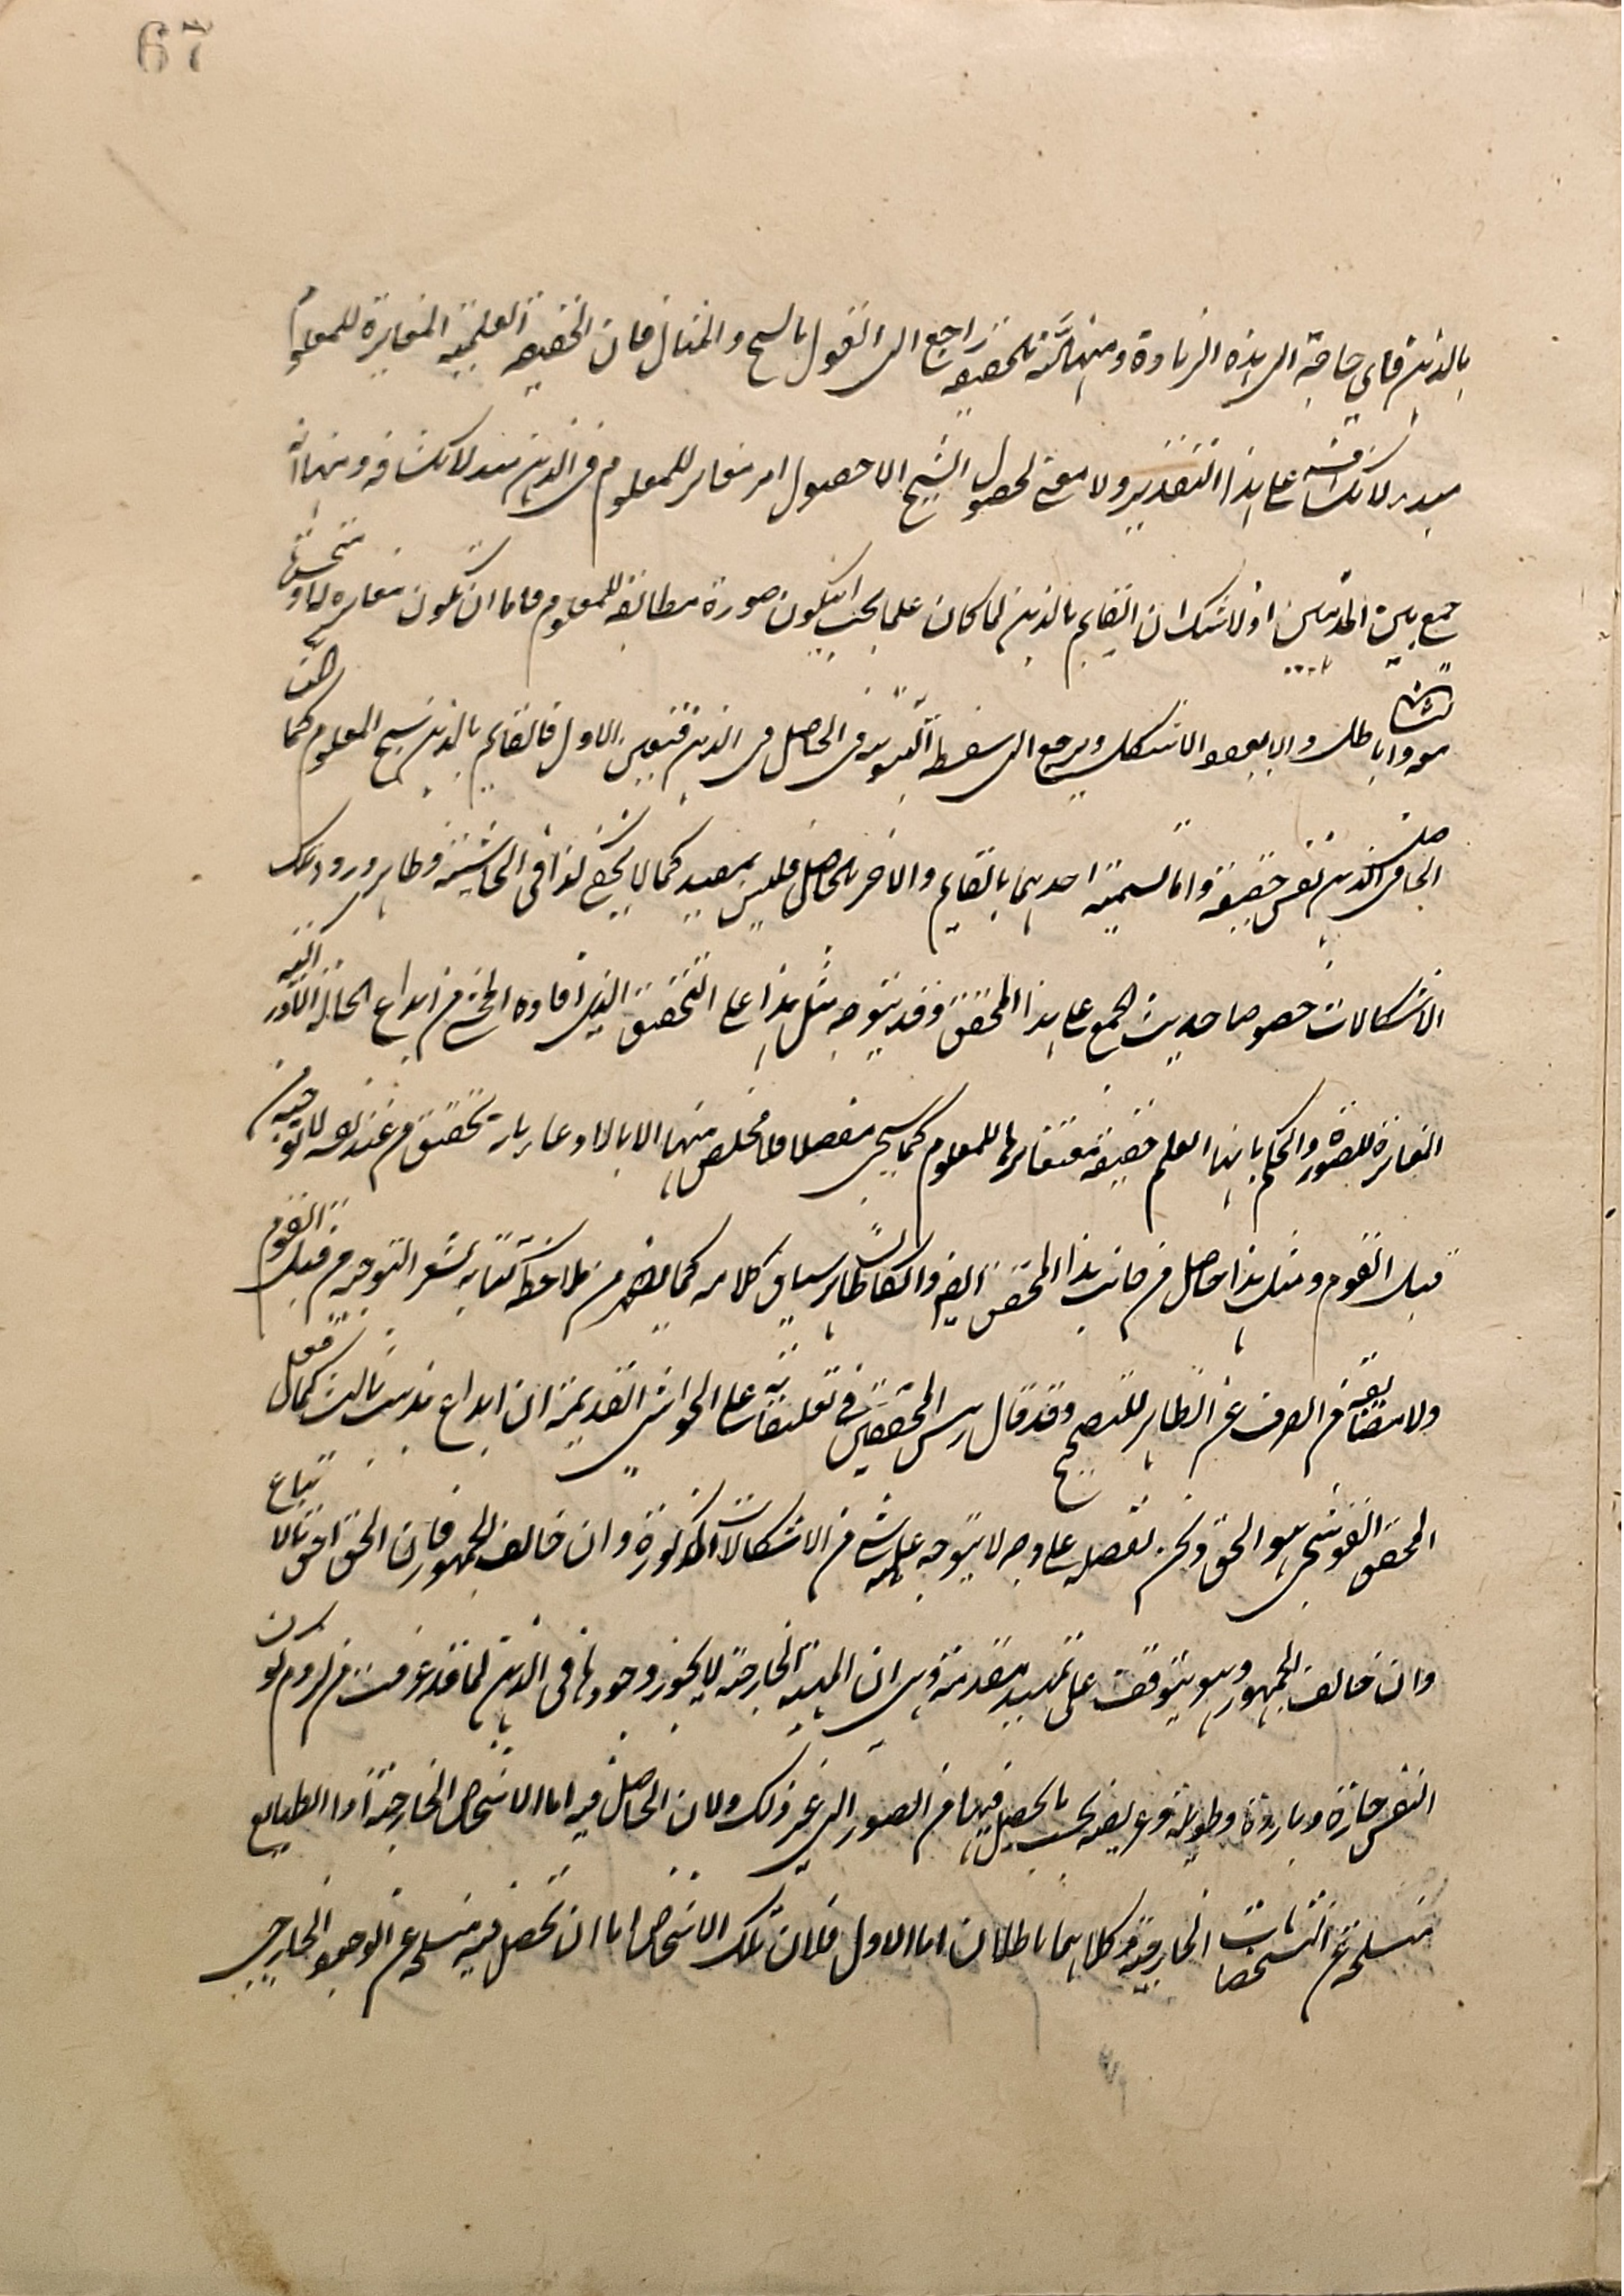 67
بالذهن فاي حاجة الى هذه الزيادة ومنها انه بالحقيقة راجع الى القول بالشبح والمثال فان الحقيقة العلمية المغايرة للمعلوم
مبدء لانكشافه على هذا التقدير ولا معنى لحصول الشبح الا حصول امر مغاير للمعلوم في الذهن مبدء لانكشافه ومنها انه
جمع بين المذهبين اذ لا شك ان القايم بالذهن لما كان علما يجب ان يكون صورة مطابقة للمعلوم فاما ان تكون مغايرة له او متحدة
معه باطل والا يعود الاشكال ويرجع الى سفسطة في الحاصل في الذهن فتعين الاول فالقايم بالذهن شبح المعلوم كما
الحاصل في الذهن نفس حقيقة واما تسمية احدهما بالقايم والاخر بالحاصل فليس بمفيد كما لا يخفى كذا في الحاشية وظاهر ورود تلك
الاشكالات خصوصا حديث الجمع على هذا المحقق وقد يتوجه مثل هذا على التحقيق الذي افاده المحشي من ابداع الحالة الادراكية
المغايرة للصورة والحكم بانها العلم حقيقة مع تغايرها للمعلوم كما سيجي مفصلا فلا مخلص منها الا بالادعاء بانه تحقيق من عنده لا توجيه من
قبل القوم ومثل هذا حاصل من جانب هذا المحقق ايضا وان كان ظاهر سياق كلامه كما يظهر من ملاحظة كتابه يشعر بالتوجيه من قبل القوم
ولا مضايقة في الصرف عن الظاهر للتصحيح وقد قال رئيس المحققين في تعليقاته على الحواشي القديمة ان ابداع مذهب ثالث كما فعل
المحقق القوشجي هو الحق ونحن نفصله على وجه لا يتوجه عليه شيء من الاشكالات المذكورة وان خالف الجمهور فان الحق احق بالاتباع
وان خالف الجمهور وهو يتوقف على تمهيد مقدمة وهي ان الماهية الخارجية لا يجوز وجودها في الذهن لما قد عرفت من لزوم كون
النفس حارة وباردة وطويلة وعريضة بحسب ما يحصل فيها من الصور الى غير ذلك ولان الحاصل فيه اما الاشخاص الخارجية او الطبايع
منسلخة عن التشخصات الخارجية وكلاهما باطلان اما الاول فلان تلك الاشخاص اما ان تحصل فيه منسلخة عن الوجود الخارجي